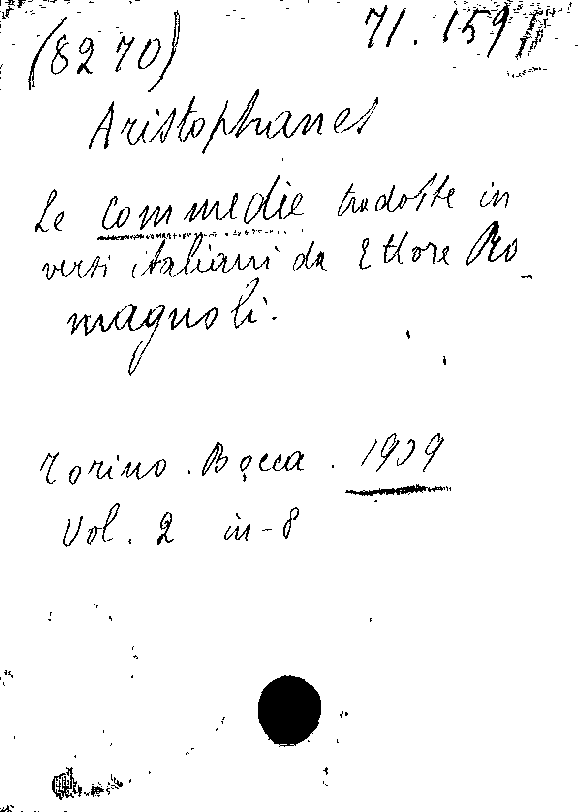 (8270) 71.159
Aristophanes
Le commedie tradotte in
versi italiani da Ettore Ro-
magnoli.
Torino. Bocca. 1909
Vol. 2 in-8